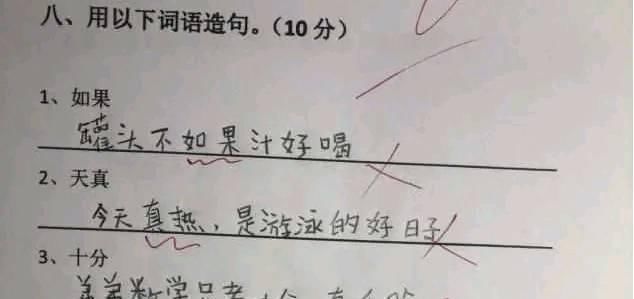 八、用以下词语造句。（10 分）
1、如果
罐头不如果汁好喝
2、天真
今天真热，是游泳的好日子
3、十分
弟弟数学只考十分，真